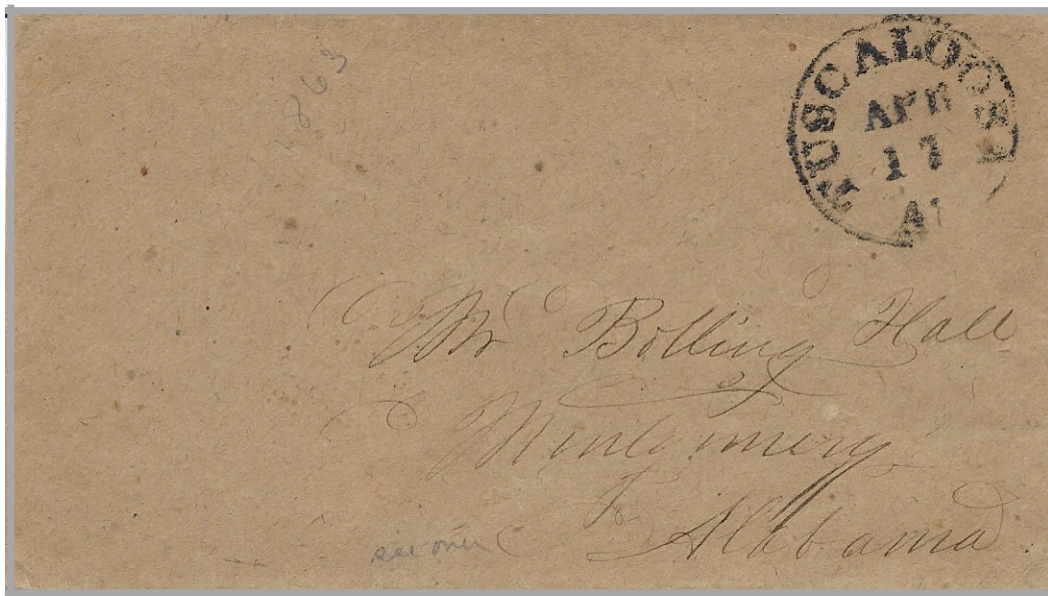 1863
TUSCALOOSA
APR
17
Al
Mr Bolling Hall
Montgomery
Alabama
see over